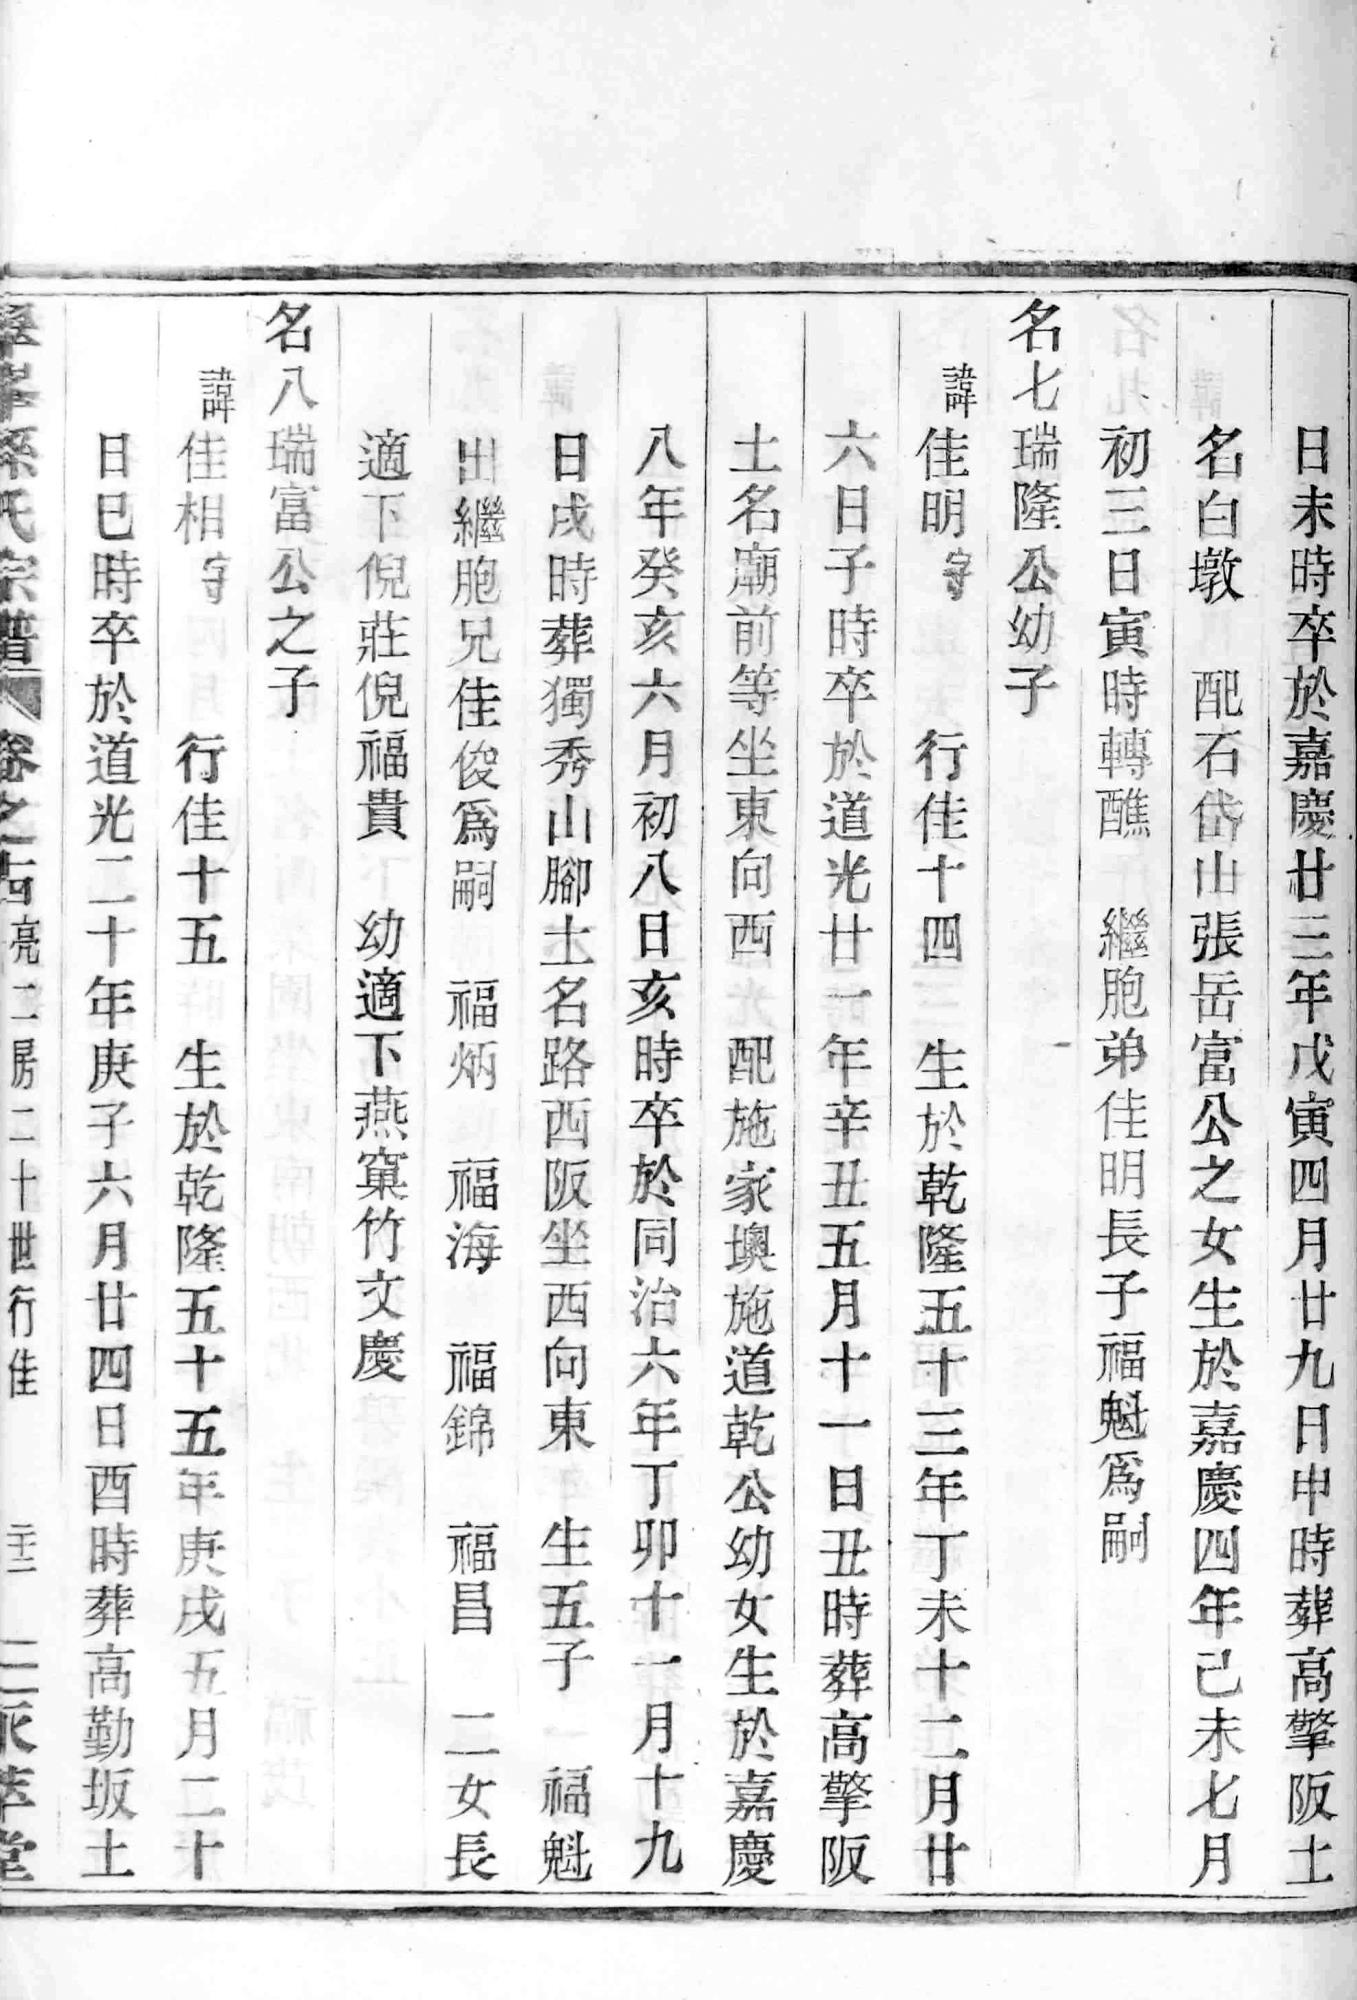 日未時卒於嘉慶廿三年戊寅四月廿九日申時葬高擎阪土
名白墩　配石岱山張岳富公之女生於嘉慶四年己未七月
初三日寅時轉醮　繼胞弟佳明長子福魁爲嗣
名七瑞隆公幼子
諱佳明字　行佳十四　生於乾隆五十三年丁未十二月廿
六日子時卒於道光廿一年辛丑五月十一日丑時葬高擎阪
土名廟前等坐東向西　配施家墺施道乾公幼女生於嘉慶
八年癸亥六月初八日亥時卒於同治六年丁卯十一月十九
日戌時葬獨秀山腳土名路西阪坐西向東　生五子　福魁
出繼胞兄佳俊爲嗣　福炳　福海　福錦　福昌　二女長
適下倪莊倪福貴　幼適下燕窠竹文慶
名八瑞富公之子
諱佳相字　行佳十五　生於乾隆五十五年庚戌五月二十
日巳時卒於道光二十年庚子六月廿四日酉時葬高勤坂土
孫氏宗譜　卷之十四　亮二房二十世行佳　萃堂